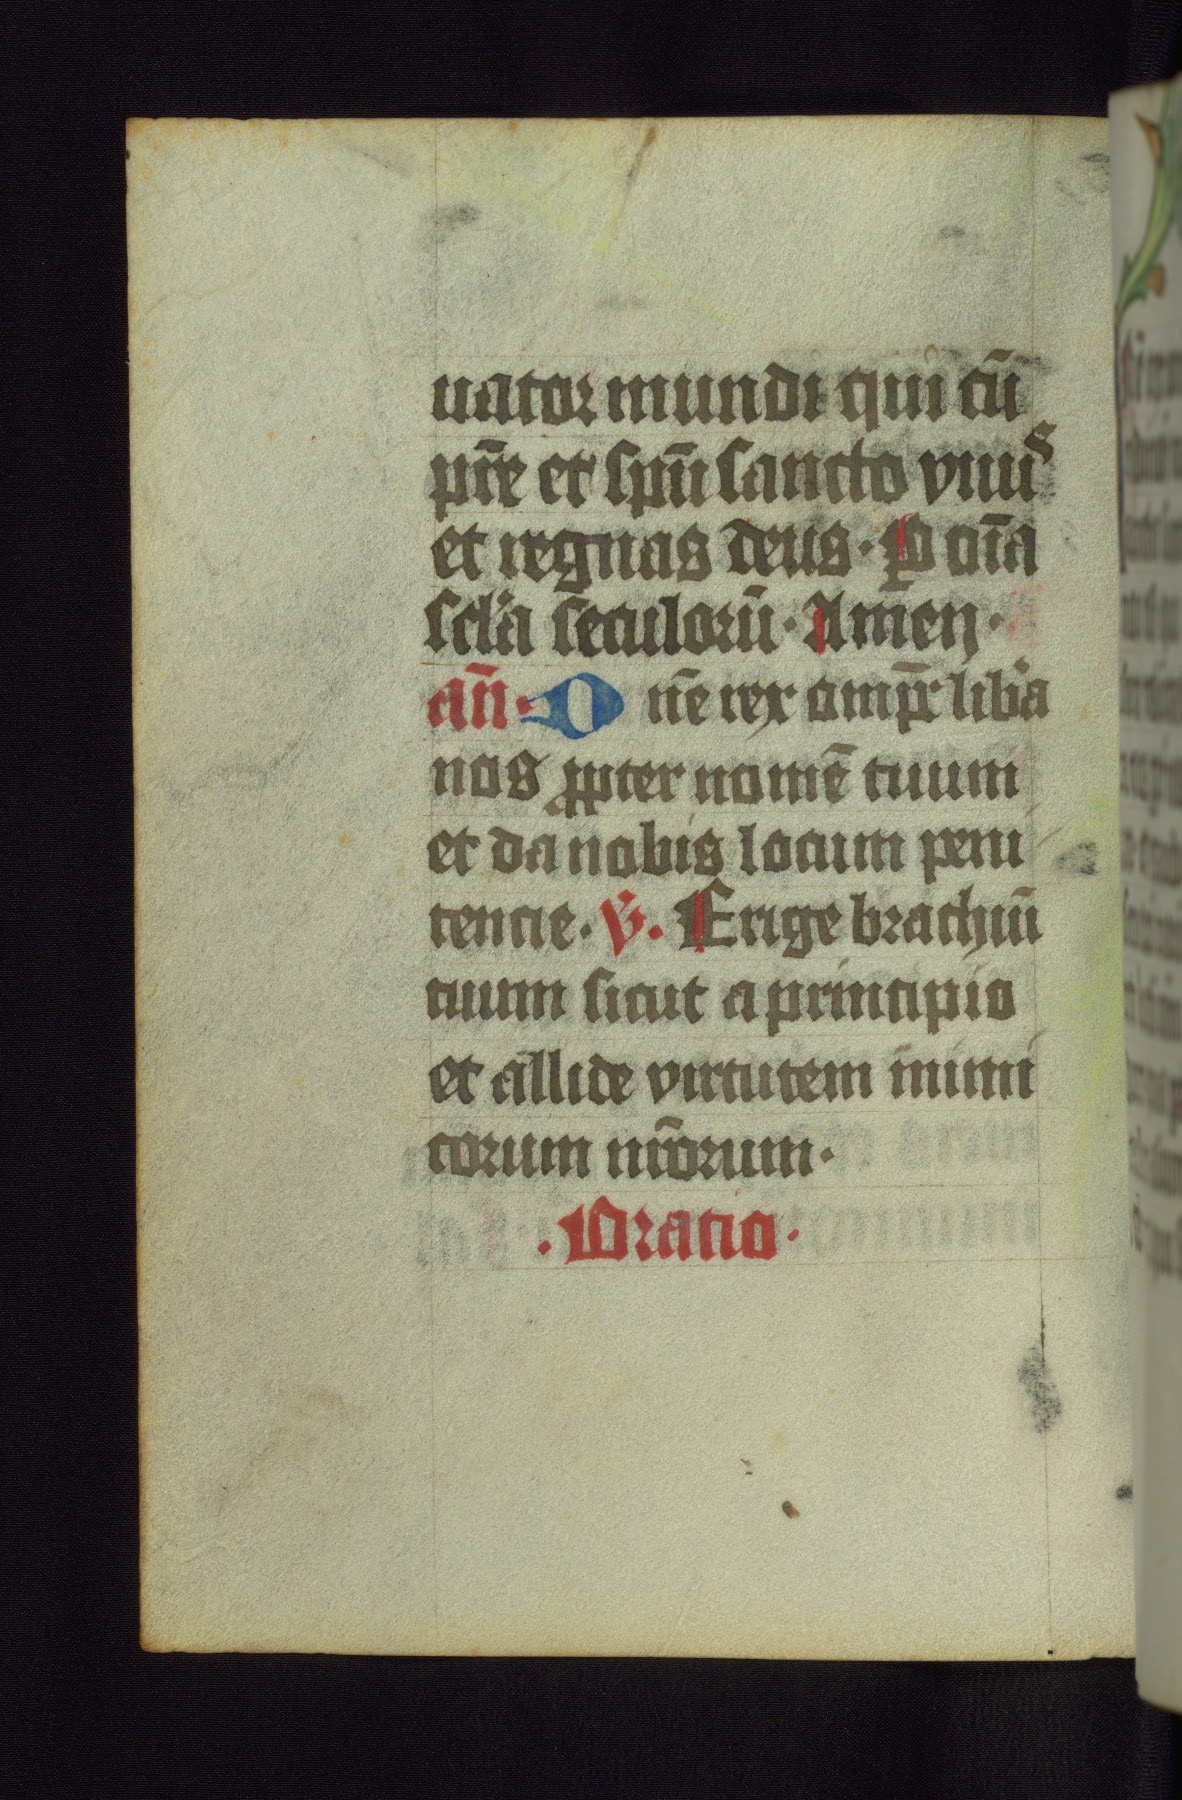 uator mundi qui cū
pr̄e et spūi sancto viuis
et regnas deus · P̲ oīa
scl'a seculorū · Amen ·
an̄ · D n̄e rex omīp̄r lib'a
nos ꝓpter nomē tuum
et da nobis locum peni
tencie · v̄ · Erige brachiū
tuum sicut a principio
et allide virtutem inimi
corum nr̄orum ·
· Oratio ·